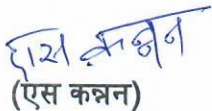 एस कन्नन
(एस कन्नन)